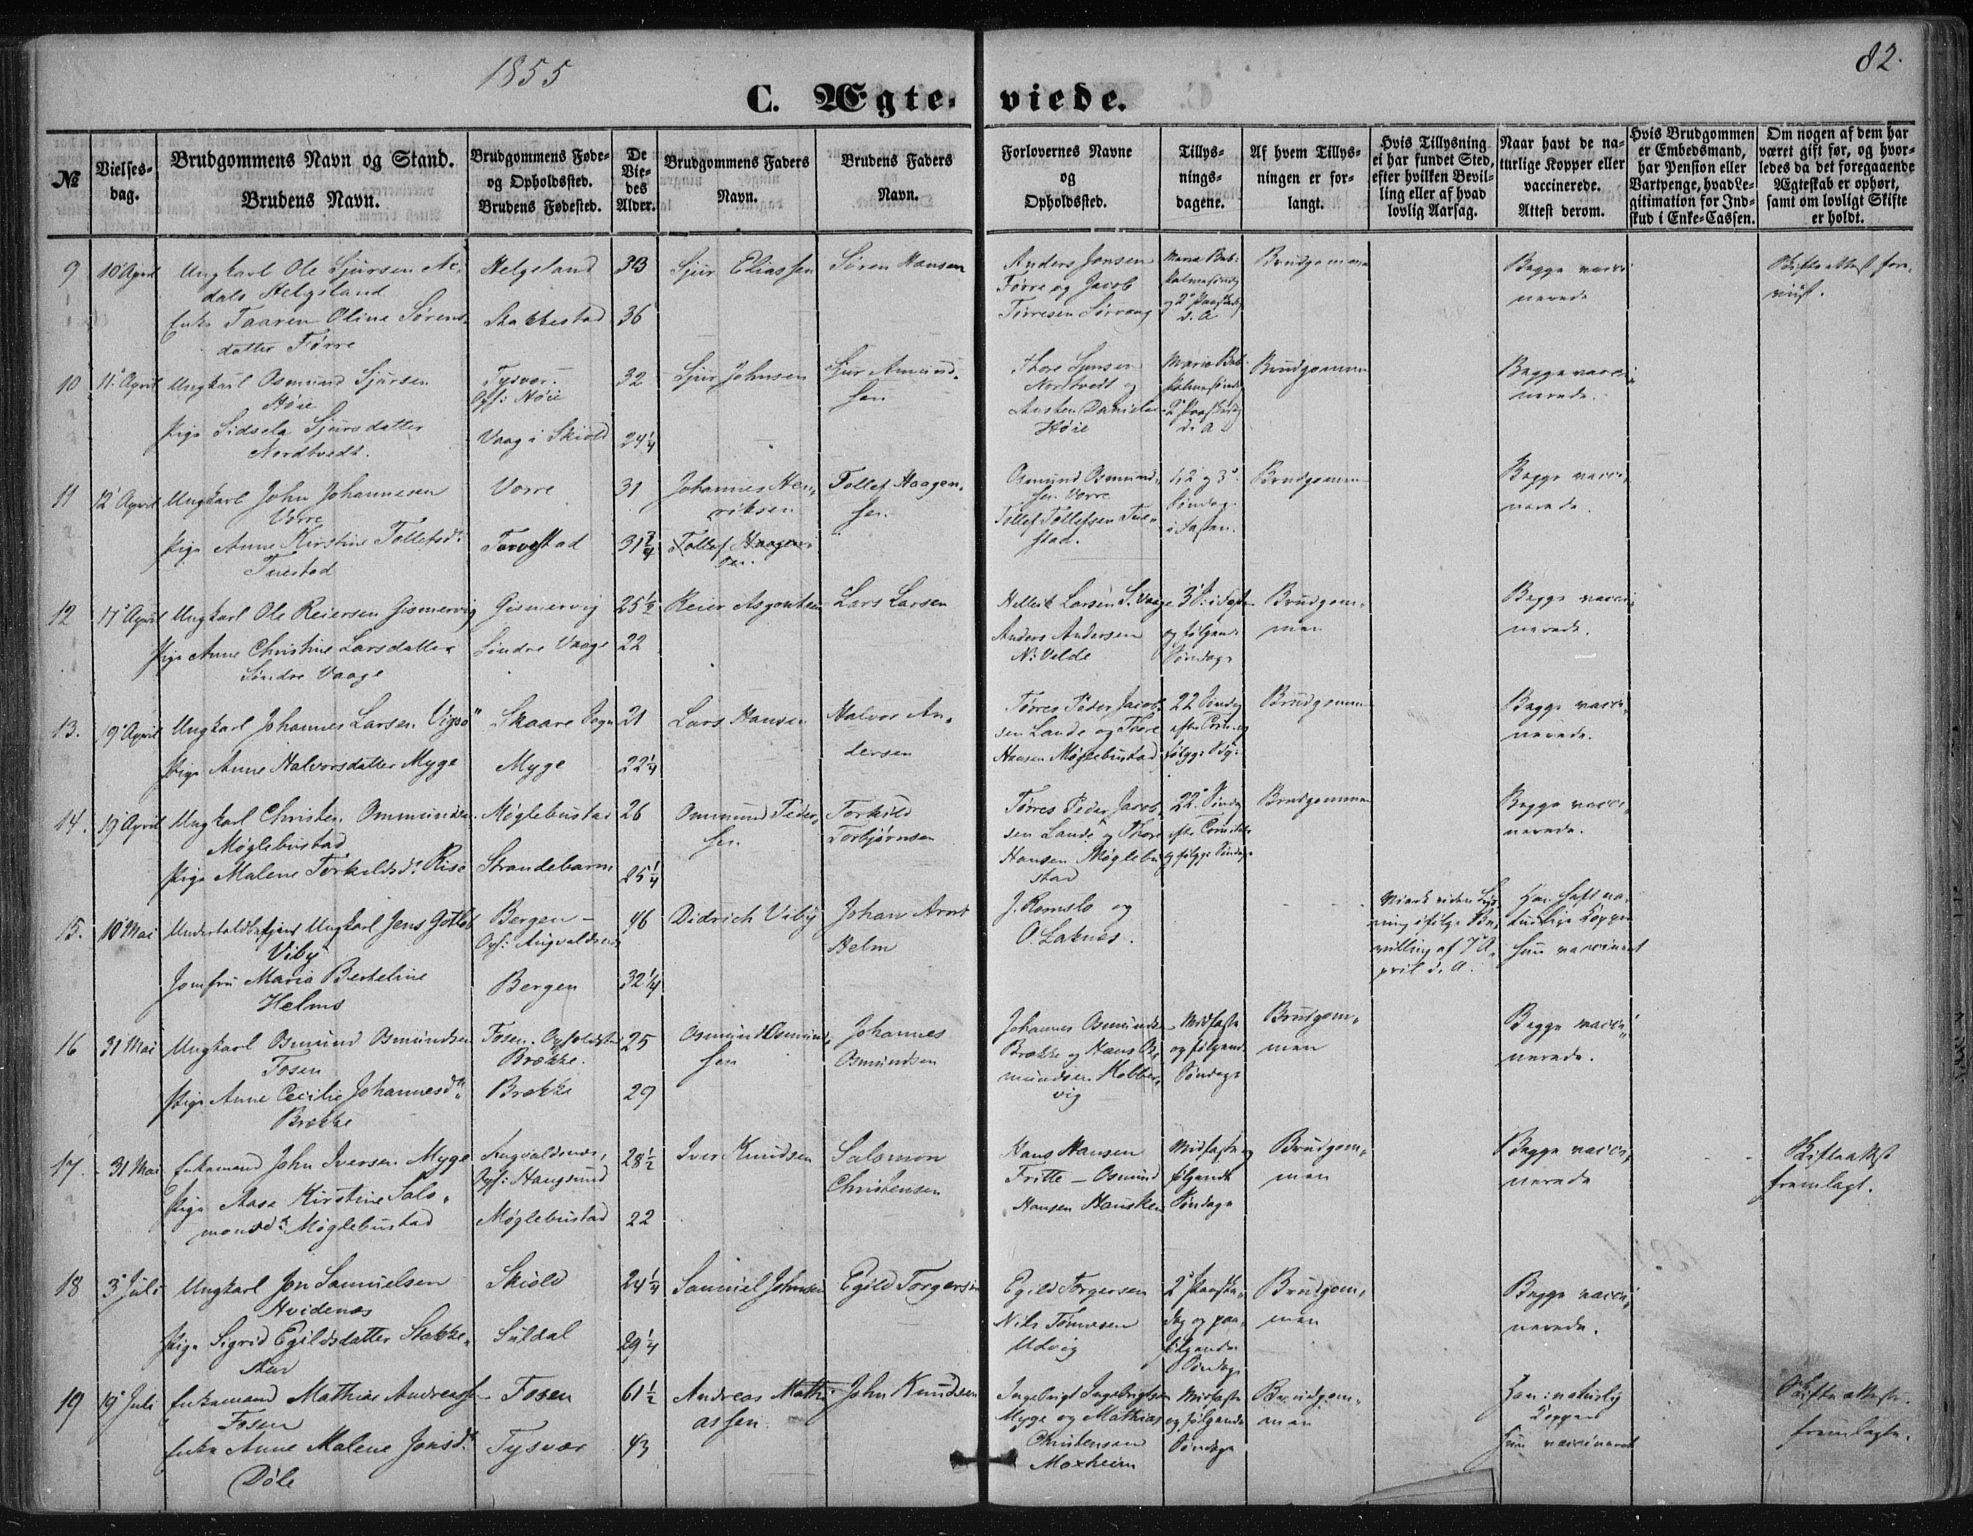 1855
82.
C. Ægteviede.
№
Vielsesdag.
Brudgommens Navn og Stand.
Brudens Navn.
Brudgommens Føde- og Opholdssted.
Brudens Fødested.
De Viedes Alder.
Brudgommens Faders Navn.
Brudens Faders Navn.
Forlovernes Navne og Opholdssted.
Tillysningsdagene.
Af hvem Tillysningen er forlangt.
Hvis Tillysning ei har fundet Sted, efter hvilken Bevilling eller af hvad lovlig Aarsag.
Naar havt de naturlige Kopper eller vaccinerede. Attest derom.
Hvis Brudgommen er Embedsmand, har Pension eller Vartpenge, hvad Legitimation for Indskud i Enke-Cassen.
Om nogen af dem har været gift før, og hvorledes da det foregaaende Ægteskab er ophørt, samt om lovligt Skifte er holdt.
9 10 April Ungkarl Ole Sjursen
Helgeland
Helgeland 33 Sjur Eliassen Søren Hansen
Anders Jansen
Førre og Jacob
Tørresen Sørvaag
Brudgommen Begge vaccinerede Skifteattest
Enke Taaren Oline Sørensdatter Førre
Stakkestad 36
10 11 April Ungkarl Osmund Sjursen
Høie
Tysvær. Oph: Høie 32 Sjur Johnsen Sjur Amundsen
Thore
Nordtvedt og
Austen
Høie
Brudgommen Begge vaccinerede.
Pige Sidsela Sjursdatter
Nordtvedt.
Vaag i Skiold 24 1/4
11 12 April Ungkarl John Johannesen
Vorre
Vorre 31 Johannes Henriksen Tollef Haagensen.
Osmund Osmundsen Vorre
Tollef Tollefsen
1, 2 og 3 Søndag i Fasten.
Brudgommen Begge vaccinerede.
Pige Anne Kirstine Tollefsd.
Tuestad
31 3/4 Tollef Haagensen.
12 17 April Ungkarl Ole Reiersen Gismervig
Gismervig 25 1/2 Reier Lars Larsen
Larsen S. Vaage
Anders Andersen
N: Velde
og følgende Søndage
Brudgommen Begge vaccinerede.
Pige Anne Christine Larsdatter
Søndre Vaage
Søndre Vaage 22
13. 19 April Ungkarl Johannes Larsen
Skaare Sogn 21 Lars Hansen Halvor Andersen
Tørres Peder Jacobsen Lande og Thore
Hansen Møglebustad
Brudgommen Begge vaccinerede.
Pige Anne Halvorsdatter Myge
Myge 22 1/4
14. 19 April Ungkarl Christen Ommundsen
Møglebustad
Møglebustad 26 Ommund Pedersen. Torkild Torbjørnsen
Tørres Peder Jacobsen Lande og Thore
Hansen Møglebustad
Brudgommen Begge vaccinerede.
Pige Malene Torkildsd.
Strandebarm 25 1/4
15. 10 Mai Undertoldbetjent Ungkarl Jens Gotleb
Viby
Bergen – Oph: Augvaldsnes 46 Didrich Viby Johan Arnt Helm
J. Romslo og
O. Laknes.
Bevilling af 7 April d. A.
Han havt naturlige Kopper
Hun vaccineret
Jomfru Maria Bertheline
Helms
Bergen 32 1/4
16 31 Mai Ungkarl Osmund Osmundsen
Fosen
Fosen. Opholdsted Brække. 25 Osmund Osmundsen Johannes Osmundsen
Johannes Osmundsen
Brække og Hans Osmundsen Kobbervig
Midfaste og følgende Søndage
Brudgommen Begge vaccinerede.
Pige Anne Cecilie Johannesd.
Brække
Brække 29
17. 31 Mai Enkemand John Iversen Myge
Augvaldsnes, Oph: Haugsund 28 1/2 Iver Knudsen Salomon Christensen
Hans Hansen
Fritte – Osmund
Hansen Hausken
Midfaste og følgende Søndage
Brudgommen Begge vaccinerede
Skifteattest fremlagt.
Pige Aasa Kirstine Salomonsd. Møglebustad
Møglebustad 22
18 3 Juli Ungkarl Jon Samuelsen
Hvidenæs
Skiold 24 1/4 Samuel Johnsen Egild Torgersen
Egild Torgersen
Nils
Udvig
2 Paaskedag og paafølgende Søndage
Brudgommen Begge vaccinerede.
Pige Sigrid Egildsdatter Stakkestad
Suldal 29 1/4
19 19 Juli Enkemand Mathias Andreassen
Fosen
Fosen 61 1/2 Andreas Mathiassen. John Knudsen
Ingebrigt Ingebrigtsen
Myge og Mathias
Christensen
Moxheim
Midfaste og følgende Søndage
Brudgommen
Han: naturlig Kopper
Hun vaccineret
Skifteattester fremlagte.
Enke Anne Malene Jonsd.
Døle
Tysvær 43